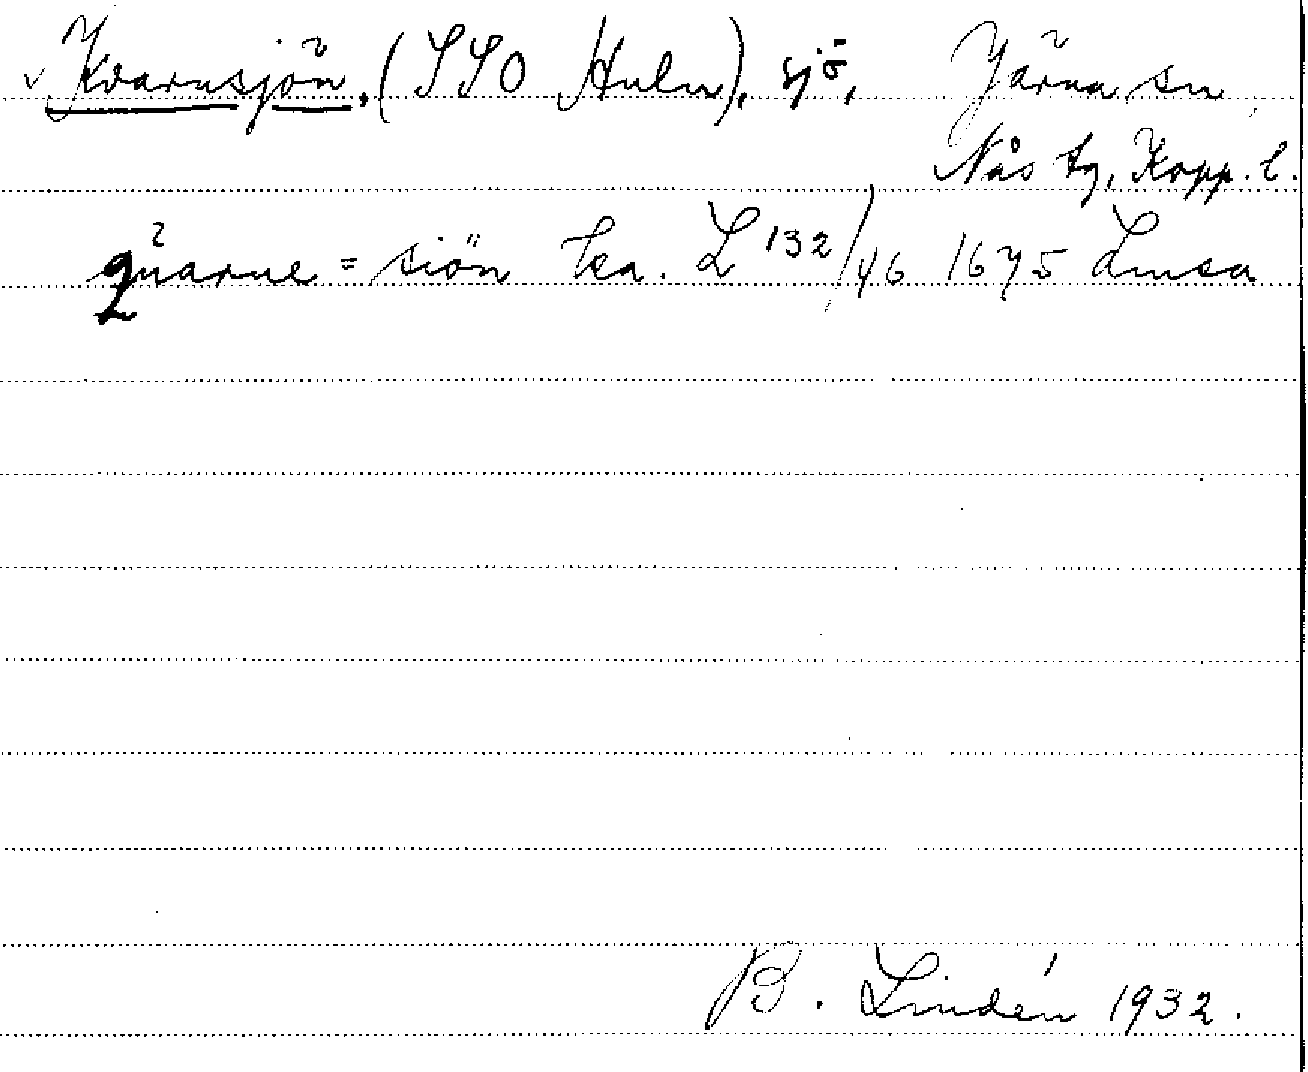 v Kvarnsjön, (SSO Huln), sjö, Järna sn
Nås tg, Kopp. l.
quarne=siön ka. L 132/46 1675 Lmsa
B. Lindén 1932.